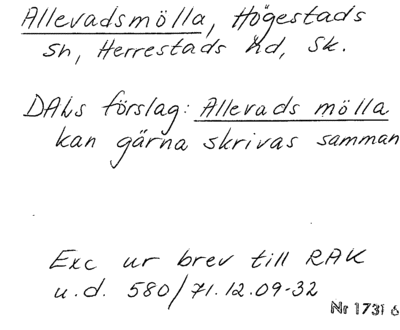 Allevadsmölla, Högestads
sn, Herrestads hd, Sk.
DALs förslag: Allevads mölla
kan gärna skrivas samman
Exc ur brev till RAK
u.d. 580/71.12.09-32
Nr 1731 6